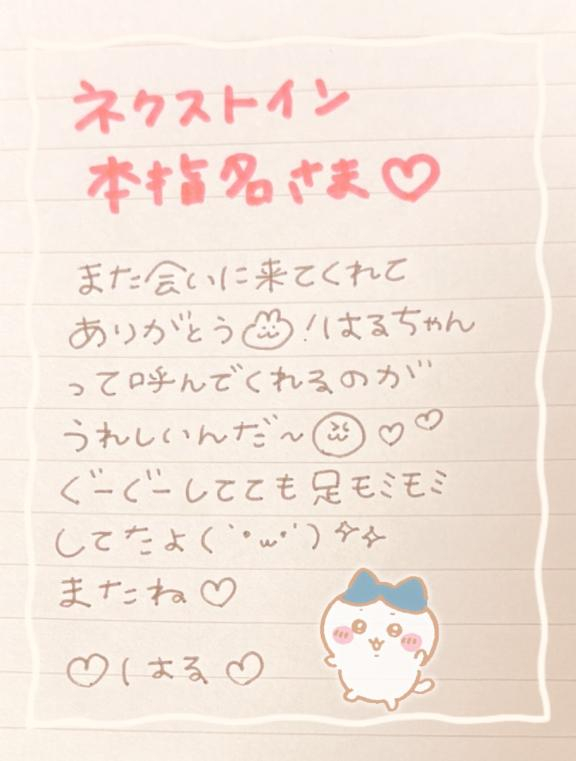 ネクストイン
本指名さま♡
また会いに来てくれて
ありがとう!はるちゃん
って呼んでくれるのが
うれしいんだ〜♡♡
ぐーぐーしてても足モミモミ
してたよ(`•ω•´)✧✧
またね♡
♡はる♡